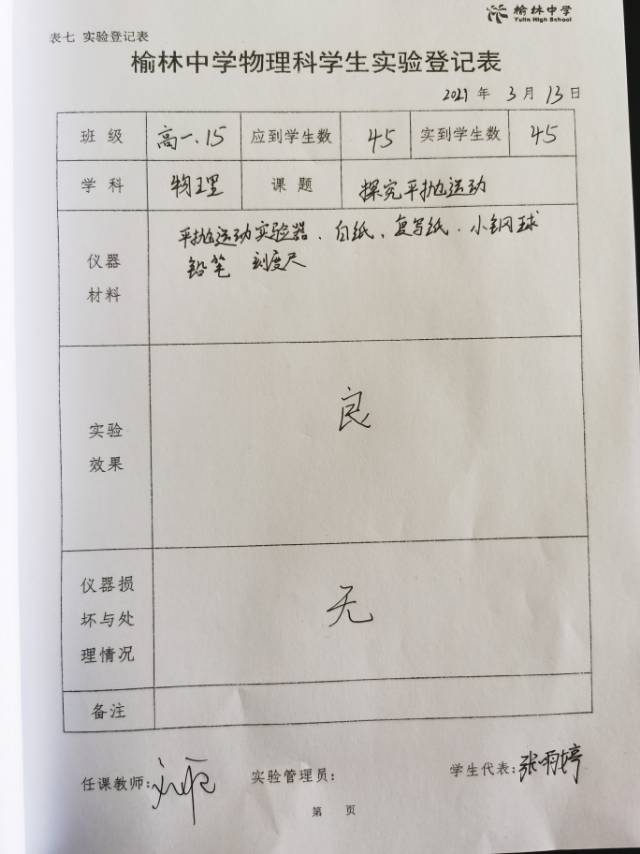 榆林中学
Yulin High School
表七 实验登记表
榆林中学物理科学生实验登记表
2021 年 3 月 13 日
班 级 高一.15 应到学生数 45 实到学生数 45
学 科 物理 课 题 探究平抛运动
仪器
材料
平抛运动实验器、白纸、复写纸、小钢球
铅笔 刻度尺
实验
效果
良
仪器损
坏与处
理情况
无
备注
任课教师: 实验管理员: 学生代表:张雨婷
第 页